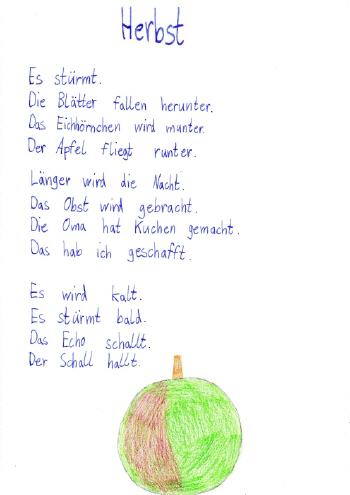 Herbst
Es stürmt.
Die Blätter fallen herunter.
Das Eichhörnchen wird munter.
Der Apfel fliegt runter.
Länger wird die Nacht.
Das Obst wird gebracht.
Die Oma hat Kuchen gemacht.
Das hab ich geschafft.
Es wird kalt.
Es stürmt bald.
Das Echo schallt.
Der Schall hallt.